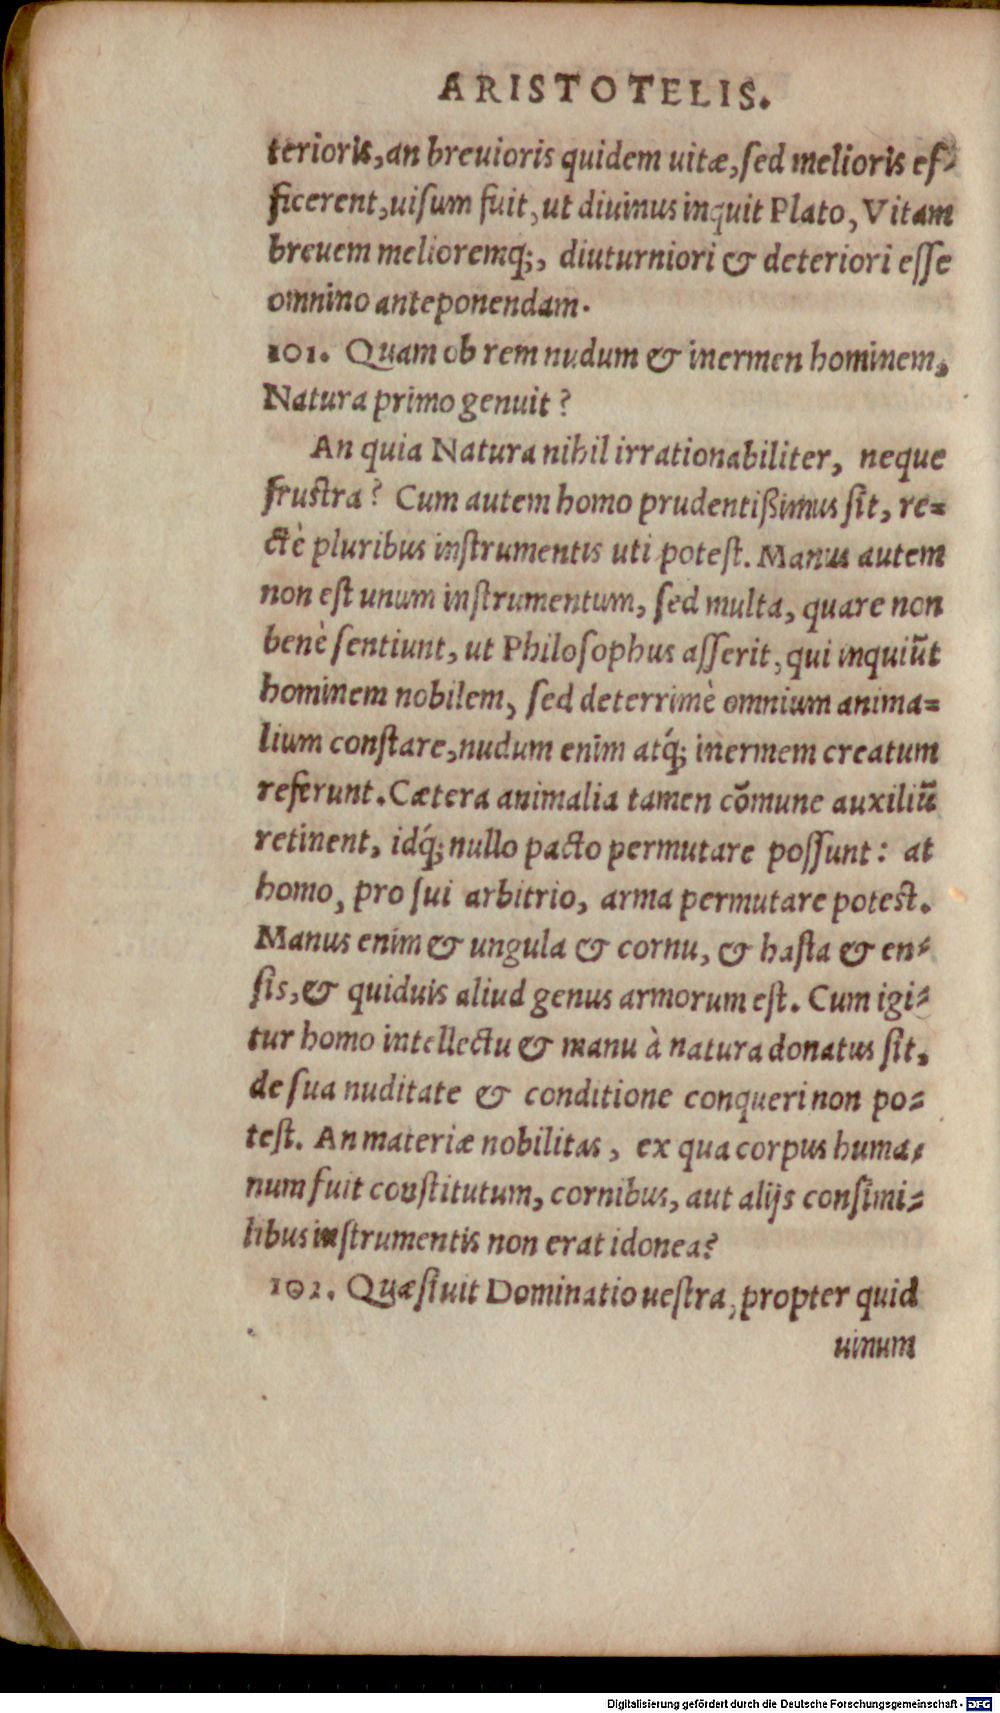 ARISTOTELIS.
terioris, an breuioris quidem uitæ, ſed melioris ef-
ficerent, uiſum fuit, ut diuinus inquit Plato, Vitam
breuem melioremq́;, diuturniori & deteriori eſſe
omnino anteponendam.
101. Quam ob rem nudum & inermen hominem,
Natura primo genuit?
An quia Natura nihil irrationabiliter, neque
fruſtra? Cum autem homo prudentißimus ſit, re=
ctè pluribus inſtrumentis uti poteſt. Manus autem
non eſt unum inſtrumentum, ſed multa, quare non
benè ſentiunt, ut Philoſophus aſſerit, qui inquiũt
hominem nobilem, ſed deterrimè omnium anima=
lium conſtare, nudum enim atq́; inermem creatum
referunt. Cætera animalia tamen cõmune auxiliũ
retinent, idq́; nullo pacto permutare poſſunt: at
homo, pro ſui arbitrio, arma permutare poteſt.
Manus enim & ungula & cornu, & haſta & en-
ſis, & quiduis aliud genus armorum eſt. Cum igi-
tur homo intellectu & manu à natura donatus ſit,
de ſua nuditate & conditione conqueri non po-
teſt. An materiæ nobilitas, ex qua corpus huma-
num fuit conſtitutum, cornibus, aut alijs conſimi-
libus inſtrumentis non erat idonea?
102. Quæſiuit Dominatio ueſtra, propter quid
uinum
Digitalisierung gefördert durch die Deutsche Forschungsgemeinschaft - DFG